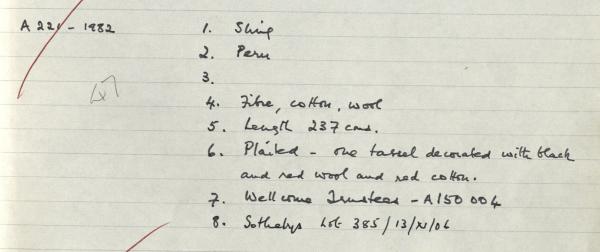 A 221 - 1982
1. Sling
2. Peru
3.
4. Fibre, cotton, wool
5. Length 237 cms.
6. Plaited - one tassel decorated with black
and red wool and red cotton.
7. Wellcome Trustees - A150 004
8. Sothebys Lot 385/13/XI/06